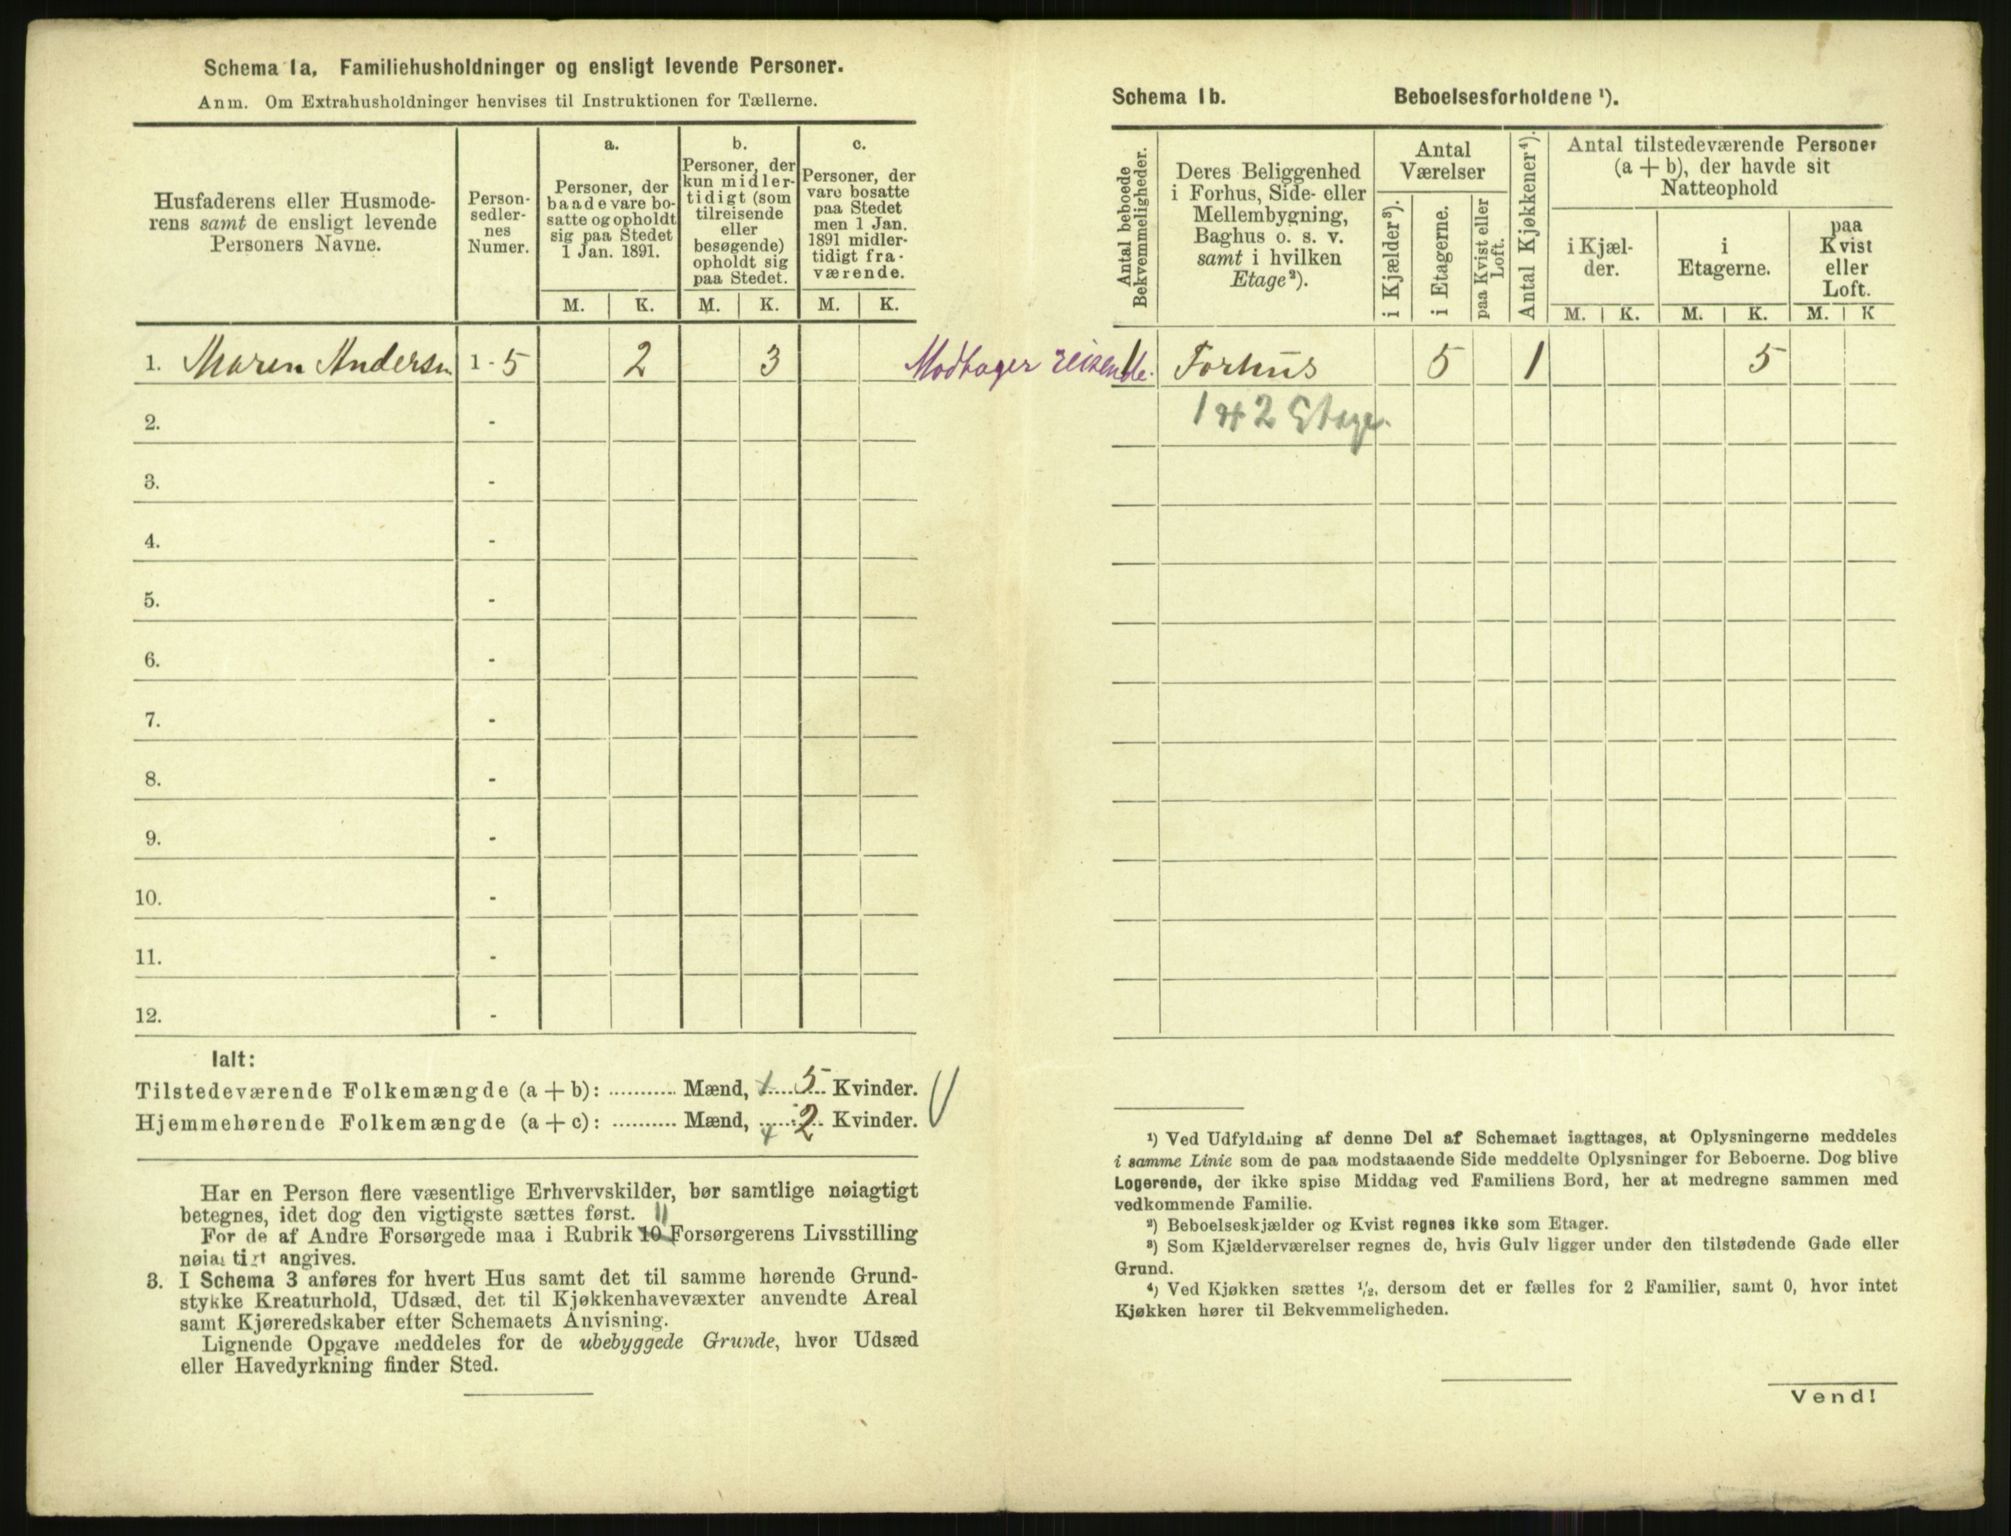 Schema 1a, Familiehusholdninger og ensligt levende Personer.
Anm. Om Extrahusholdninger henvises til Instruktionen for Tællerne.
Husfaderens eller Husmode-
rens samt de ensligt levende
Personers Navne.
Person-
sedler-
nes
Numer.
a.
Personer, der
baade vare bo-
satte og opholdt
sig paa Stedet
1 Jan. 1891.
b.
Personer, der
kun midler-
tidigt (som
tilreisende
eller
besøgende)
opholdt sig
paa Stedet.
c.
Personer, der
vare bosatte
paa Stedet
men 1 Jan.
1891 midler-
tidigt fra-
værende.
M. K. M. K. M. K.
1. Maren Andersen 1 - 5 2 3 Modtager reisende.
2. -
3. -
4. -
5. -
6. -
7. -
8. -
9. -
10. -
11. -
12. -
Ialt:
Tilstedeværende Folkemængde (a + b): .......... Mænd, ..... 5 Kvinder.
Hjemmehørende Folkemængde (a + c): .......... Mænd, ..... 2 Kvinder.
Har en Person flere væsentlige Erhvervskilder, bør samtlige nøiagtigt
betegnes, idet dog den vigtigste sættes først. 11
For de af Andre Forsørgede maa i Rubrik 10 Forsørgerens Livsstilling
nøiagtigt angives.
3. I Schema 3 anføres for hvert Hus samt det til samme hørende Grund-
stykke Kreaturhold, Udsæd, det til Kjøkkenhavevæxter anvendte Areal
samt Kjøreredskaber efter Schemaets Anvisning.
Lignende Opgave meddeles for de ubebyggede Grunde, hvor Udsæd
eller Havedyrkning finder Sted.
Schema 1b. Beboelsesforholdene ¹).
Antal beboede
Bekvemmeligheder.
Deres Beliggenhed
i Forhus, Side- eller
Mellembygning,
Baghus o. s. v.
samt i hvilken
Etage²).
Antal
Værelser
i Kjælder³).
i Etagerne.
paa Kvist eller
Loft.
Antal Kjøkkener⁴).
Antal tilstedeværende Personer
(a + b), der havde sit
Natteophold
i Kjæl-
der.
i
Etagerne.
paa
Kvist
eller
Loft.
M. K. M. K. M. K
1 Forhus 5 1 5
1 og 2 Etage.
¹) Ved Udfyldning af denne Del af Schemaet iagttages, at Oplysningerne meddeles
i samme Linie som de paa modstaaende Side meddelte Oplysninger for Beboerne. Dog blive
Logerende, der ikke spise Middag ved Familiens Bord, her at medregne sammen med
vedkommende Familie.
²) Beboelseskjælder og Kvist regnes ikke som Etager.
³) Som Kjælderværelser regnes de, hvis Gulv ligger under den tilstødende Gade eller
Grund.
⁴) Ved Kjøkken sættes ¹/₂, dersom det er fælles for 2 Familier, samt 0, hvor intet
Kjøkken hører til Bekvemmeligheden.
Vend!